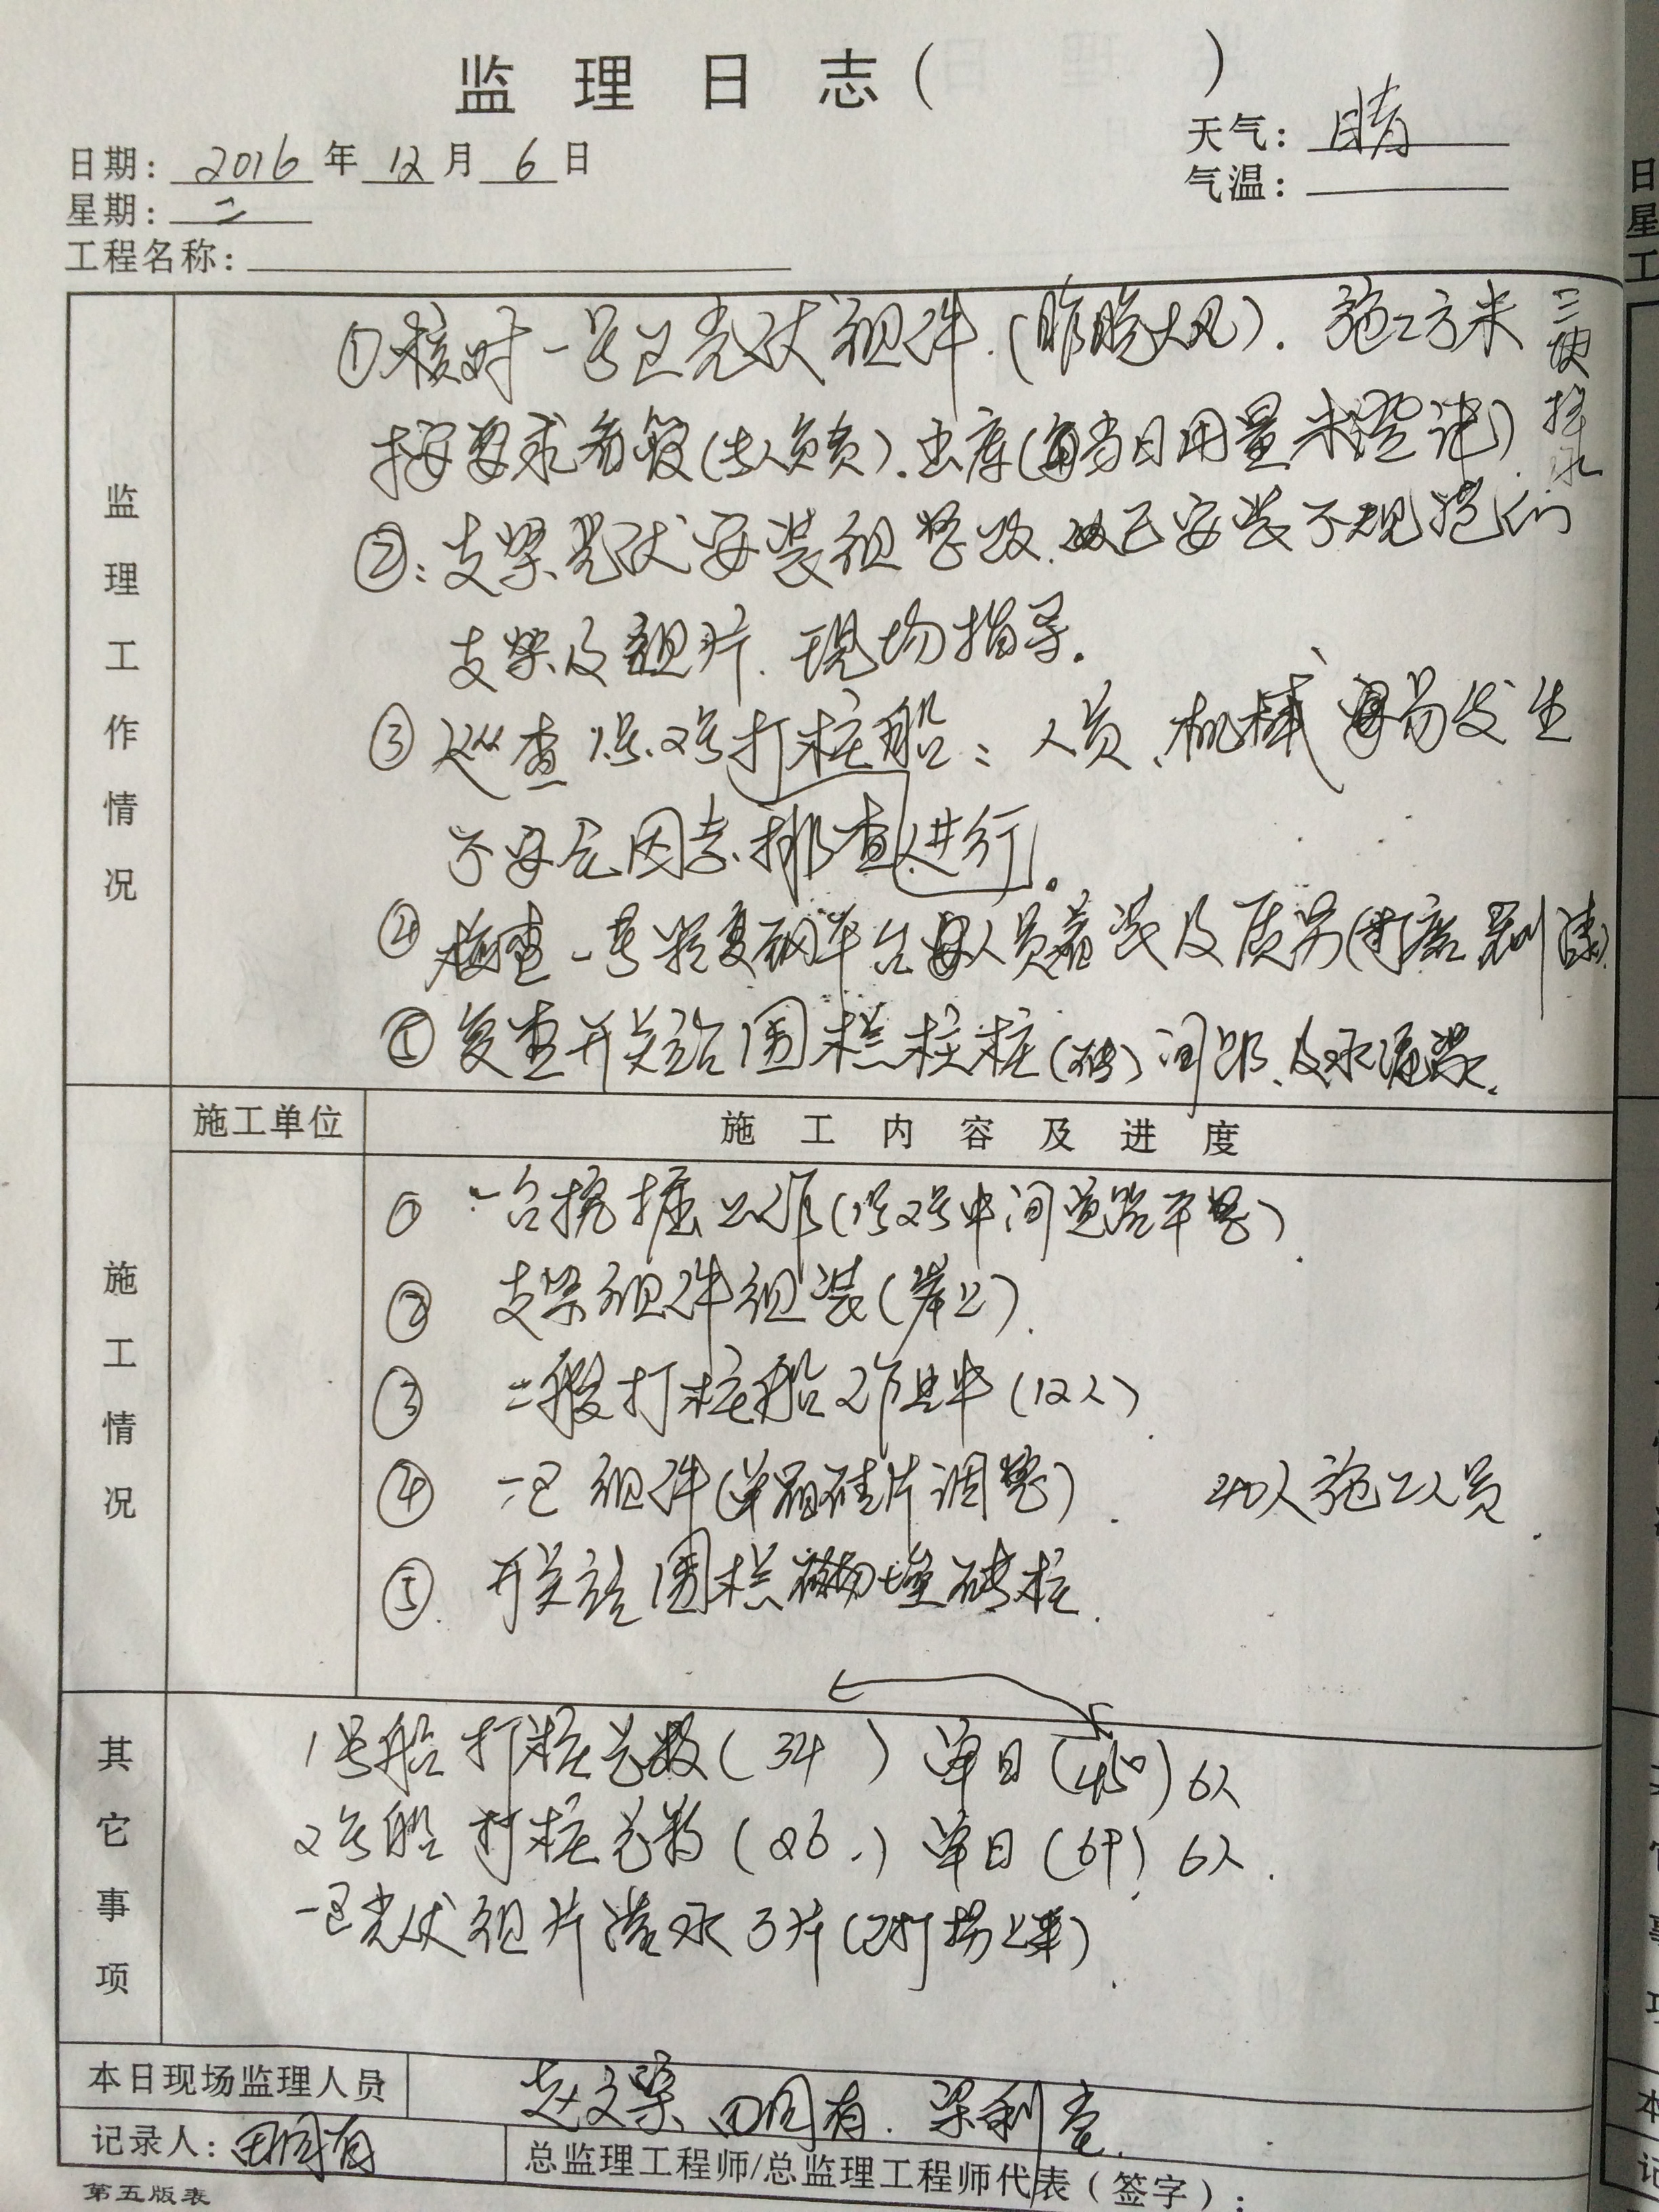 监理日志( )
日期: 2016 年 12 月 6 日
天气: 晴
气温:
星期: 二
工程名称:
监理工作情况
①核对一号区光伏组件.(昨晚大风). 施工方未
三块掉水
按要求看管(专人负责).出库(每当日用量未登记)
②:支架光伏安装组整改.对已安装不规范的
支架及组片.现场指导.
③巡查1号.2号打桩船:人员、机械、易发生
不安全因素.排查进行.
④检查一号 钢平台 人员 及质 (打磨 刷漆)
⑤复查开关站围栏柱桩(砖)间距.及水泥浆.
施工单位
施工内容及进度
施工情况
① 一台挖掘工作(1号2号中间道路平整).
② 支架组件组装(岸上).
③ 二艘打桩船作业中(12人).
④ 一区组件(单晶硅片调整). 施工人员.
⑤. 开关站围栏砌墙砖柱.
其它事项
1号船打桩总数(34 ) 单日(450)6人
2号船打桩总数(86.) 单日(69)6人.
一区光伏组片落水3片(已打捞上来).
本日现场监理人员
赵文梁 田国有. 梁利
记录人: 田国有
总监理工程师/总监理工程师代表(签字):
第五版表
日
星
工